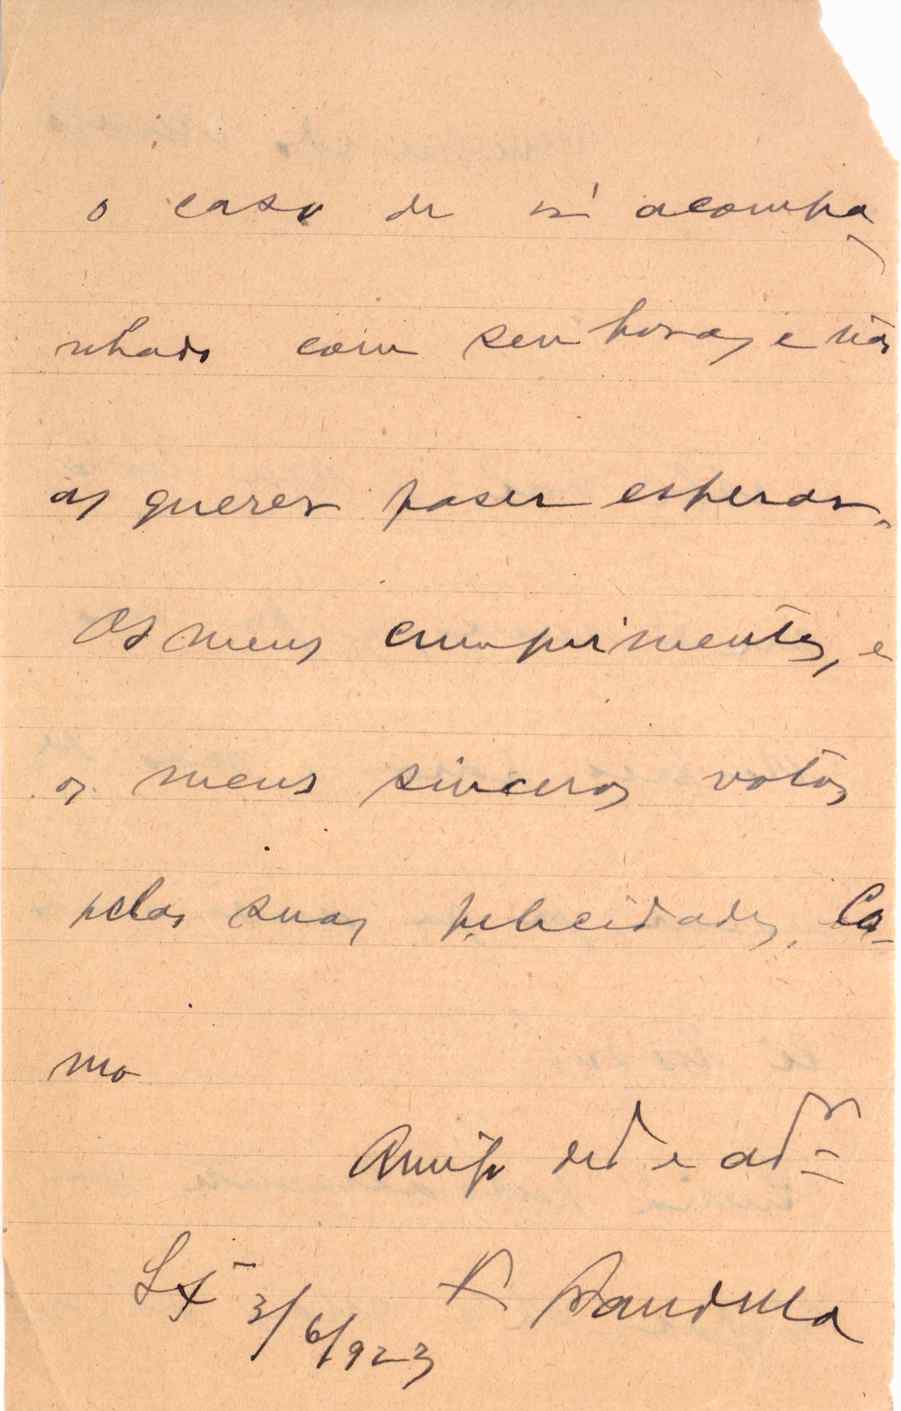 o caso de vir acompa
nhado com senhoras, e não
as querer fazer esperar.
Os meus cumprimentos, e
os meus sinceros votos
pelas suas felicidades, Co-
mo
Amigo ded e adr
Lxª 3/6/923